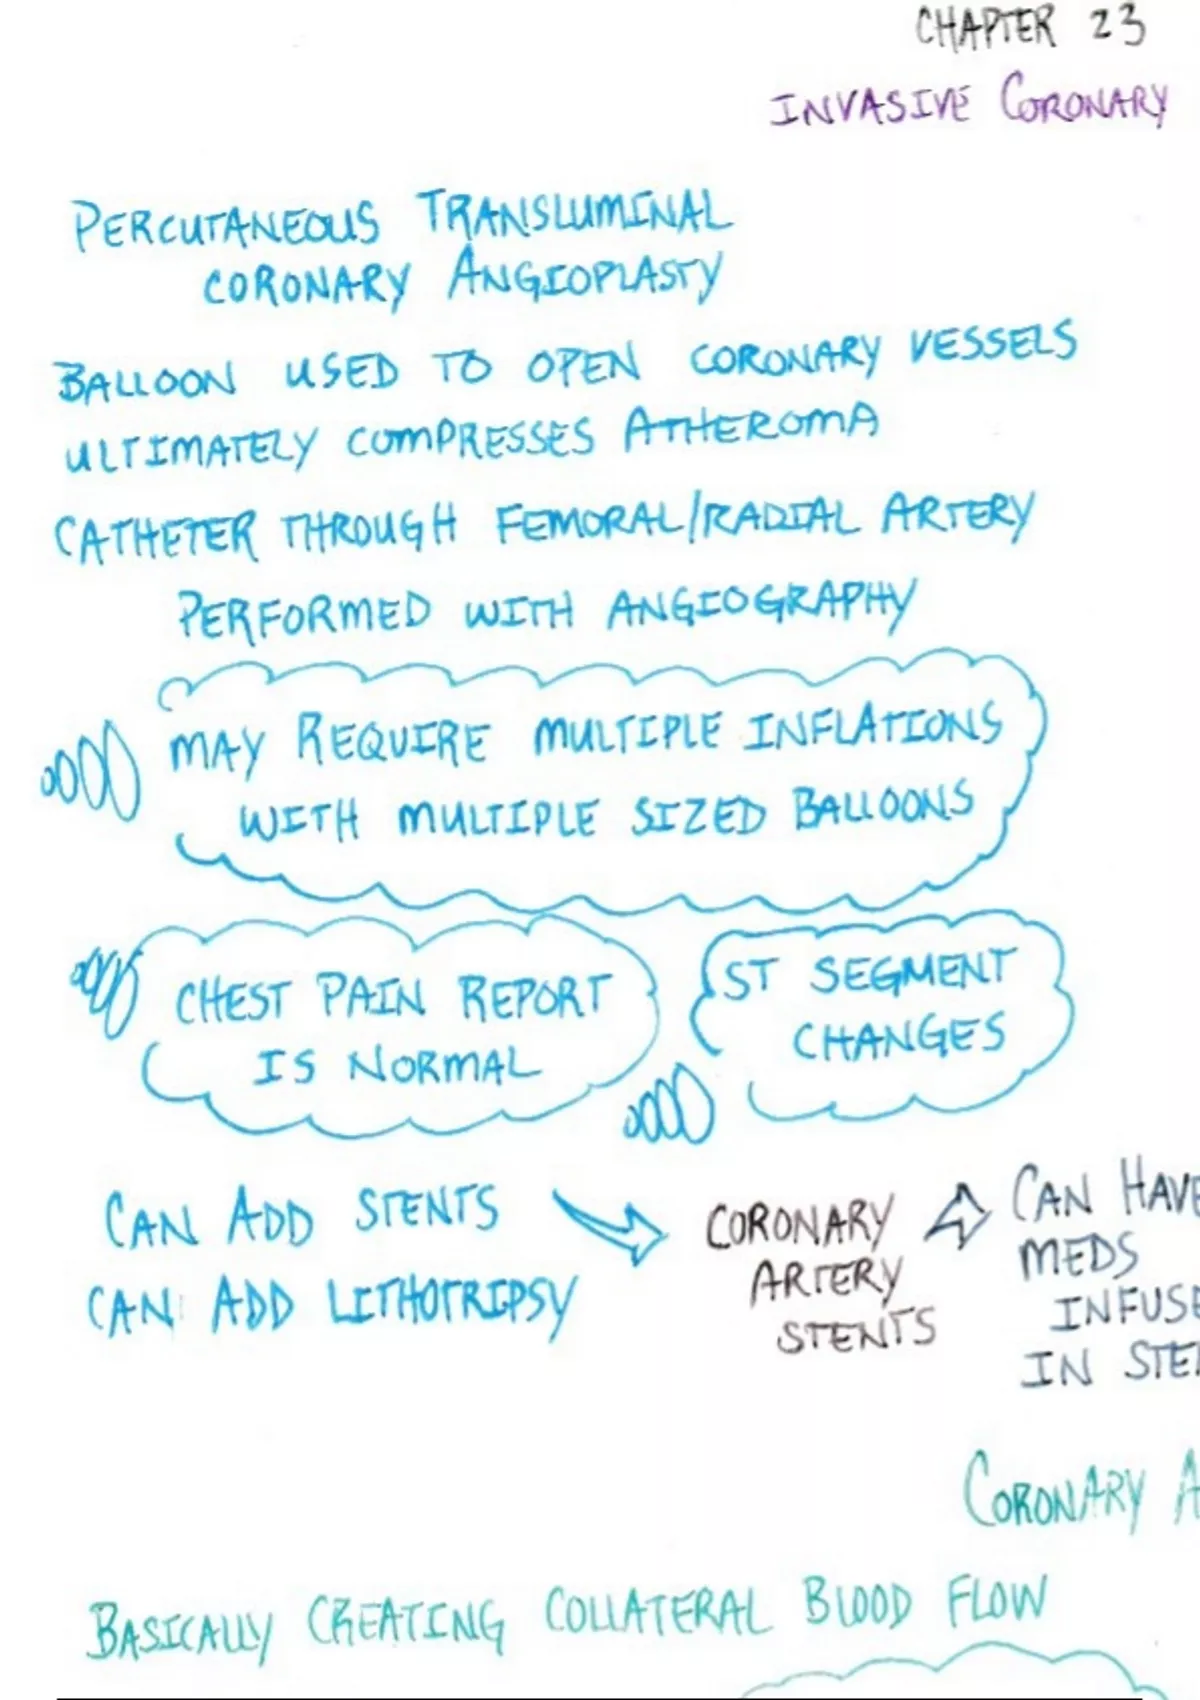 CHAPTER 23
INVASIVE CORONARY
PERCUTANEOUS TRANSLUMINAL
CORONARY ANGIOPLASTY
BALLOON USED TO OPEN CORONARY VESSELS
ULTIMATELY COMPRESSES ATHEROMA
CATHETER THROUGH FEMORAL/RADIAL ARTERY
PERFORMED WITH ANGIOGRAPHY
MAY REQUIRE MULTIPLE INFLATIONS
WITH MULTIPLE SIZED BALLOONS
CHEST PAIN REPORT
IS NORMAL
ST SEGMENT
CHANGES
CAN ADD STENTS
CAN ADD LITHOTRIPSY
CORONARY
ARTERY
STENTS
CAN HAVE
MEDS
INFUSE
IN
CORONARY
BASICALLY CREATING COLLATERAL BLOOD FLOW